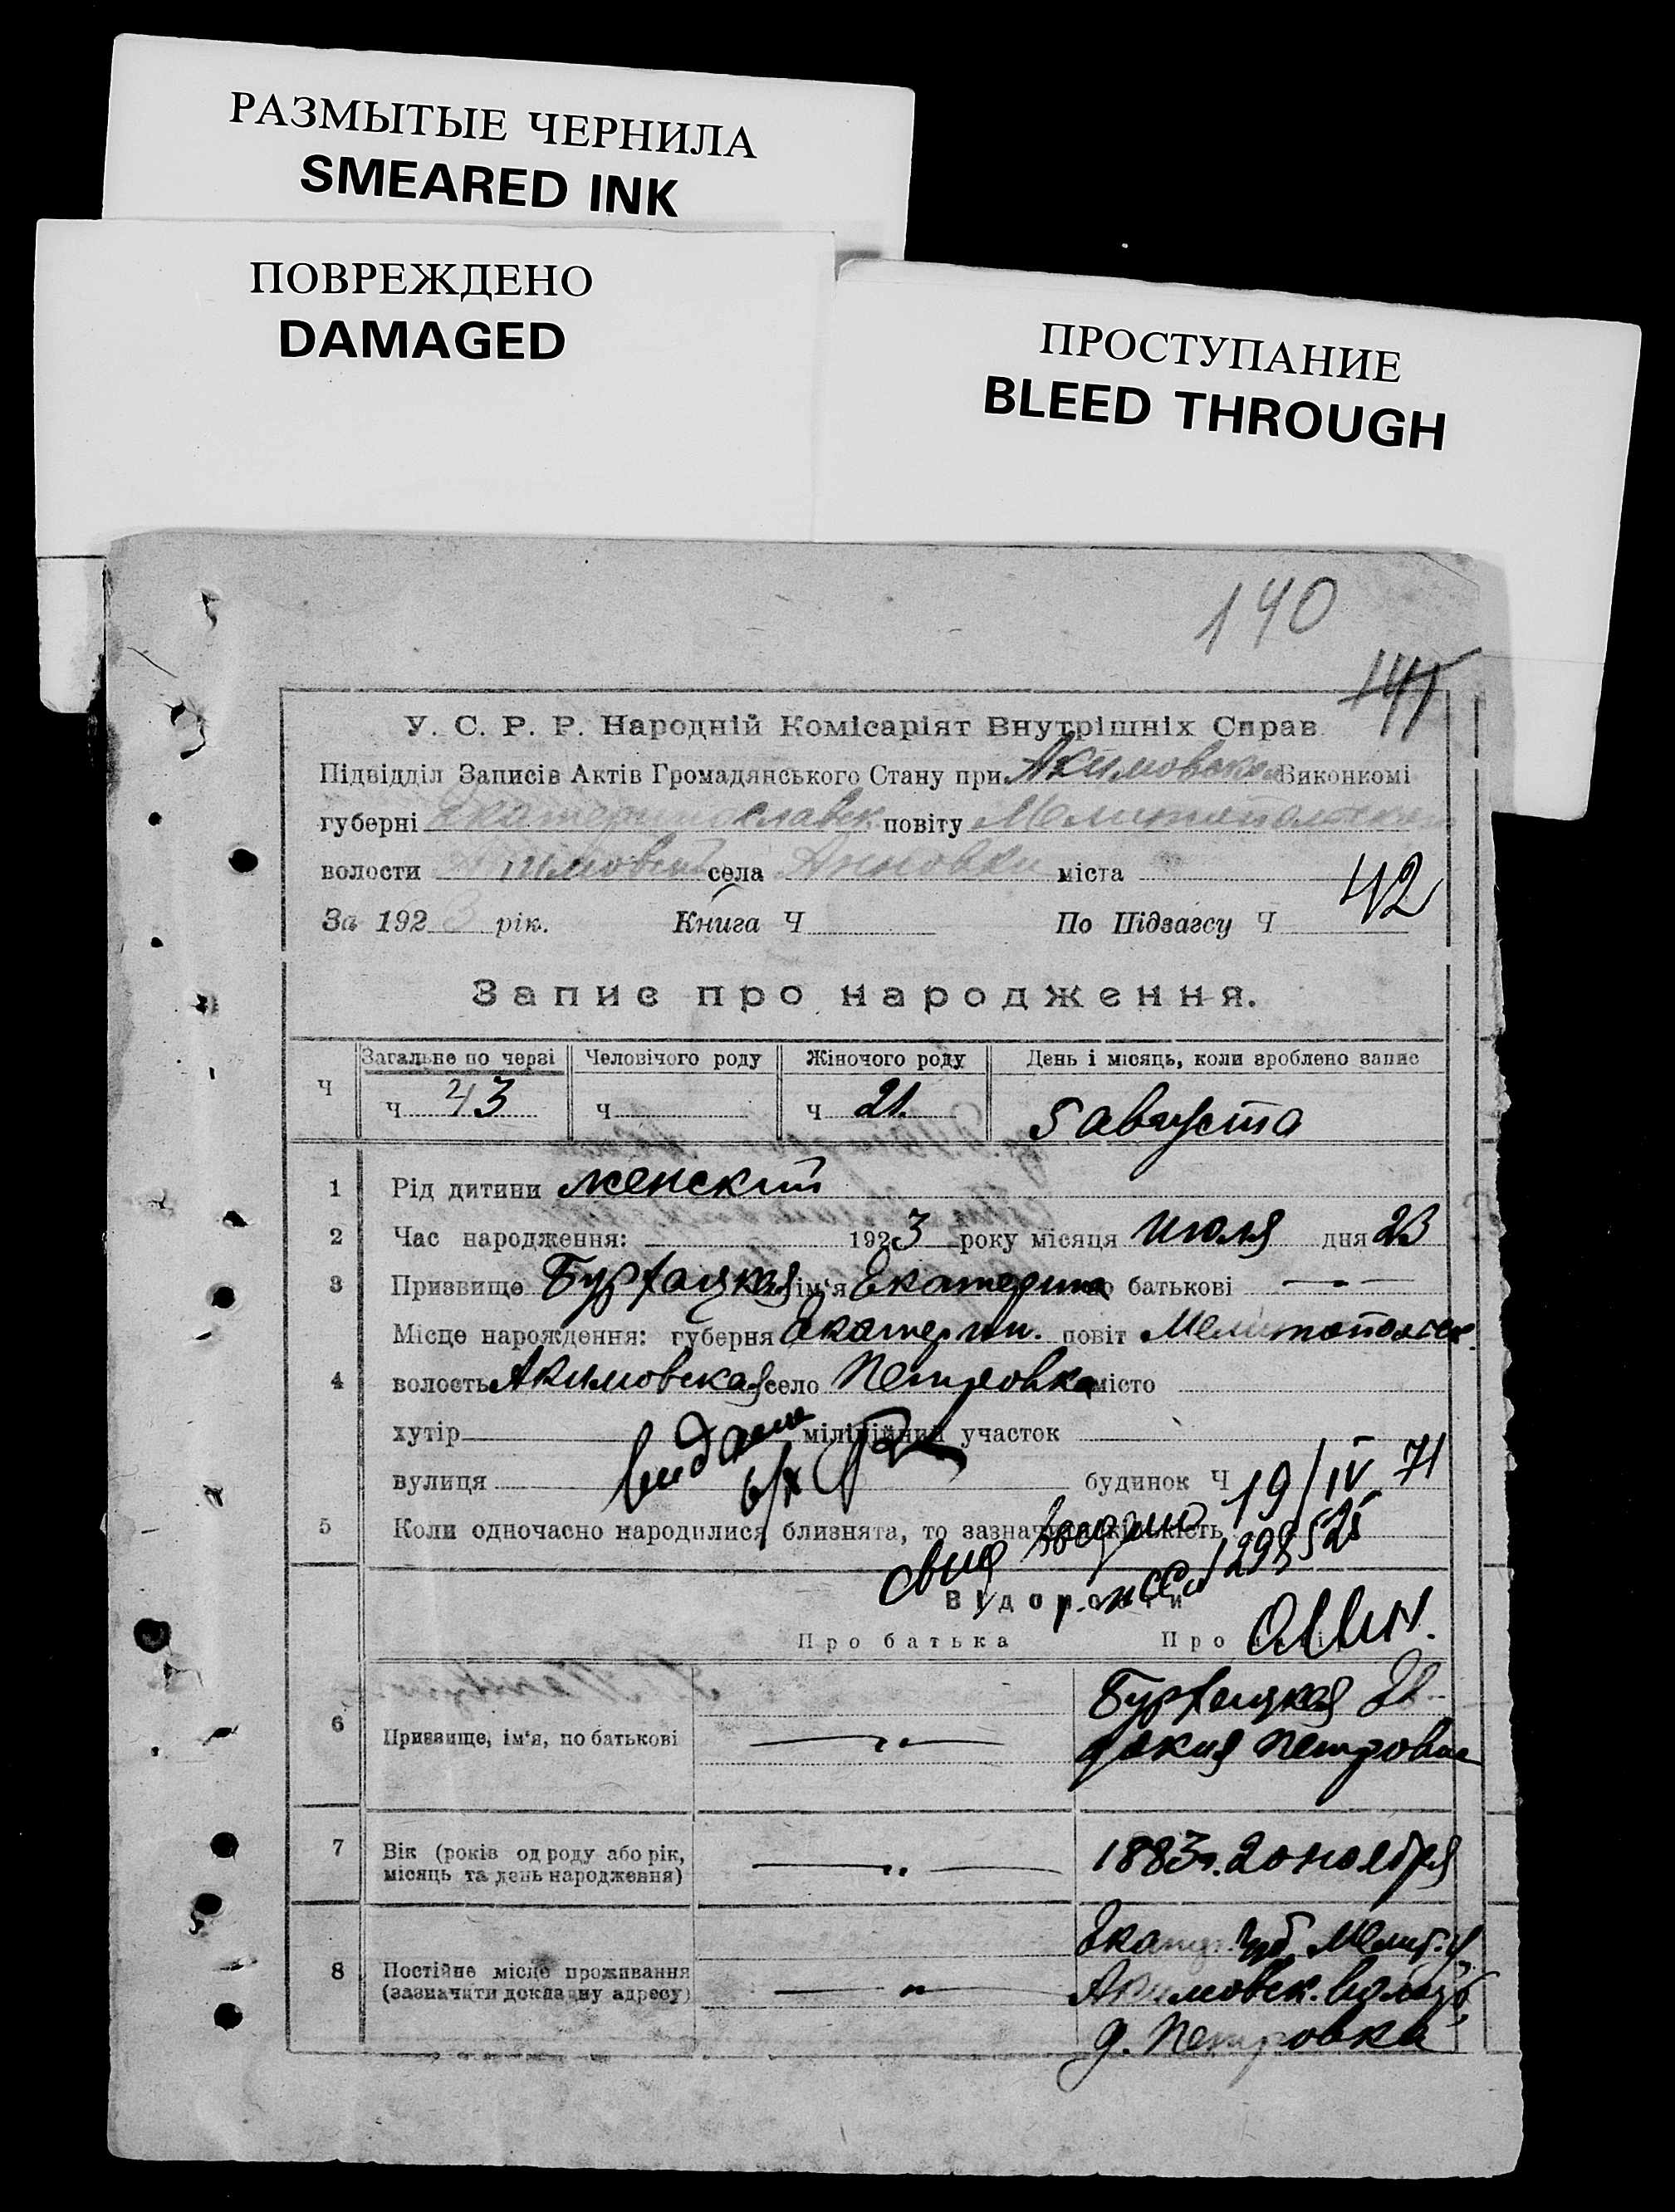 РАЗМЫТЫЕ ЧЕРНИЛА
SMEARED INK
ПОВРЕЖДЕНО
DAMAGED
ПРОСТУПАНИЕ
BLEED THROUGH
140
141
У. С. Р. Р. Народній Комісаріят Внутрішніх Справ
Підвідділ Записів Актів Громадянського Стану при Акимовском Виконкомі
губерні Екатеринославск повіту Мелитопольского
волости Акимовской села Анновки міста
За 1923 рік. Книга Ч По Підзагсу Ч 42
Запис про народження.
Ч Загальне по черзі Человічого роду Жіночого роду День і місяць, коли зроблено запис
ч 43 ч ч 21. 5 августа
1 Рід дитини женский
2 Час народження: 1923 року місяця июля дня 23
3 Призвище ім'я Екатерина по батькові — " —
Місце народження: губерня Екатерин. повіт Мелитопольск.
4 волость Акимовская село Петровка місто
хутір міліційний участок
вулиця будинок Ч
19/IV 71
5 Коли одночасно народилися близнята, то зазначити кількість
Відомости
Про батька Про матір
6 Призвище, ім'я, по батькові — " — Ев-
докия Петровна
7 Вік (років од роду або рік, місяць та день народження) — " — 1883 г. 20 ноября
8 Постійне місце проживання (зазначити докладну адресу) — " — Екатер. губ. Мелит. у.
Акимовск. вол.
д. Петровка